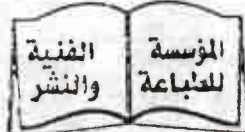 المؤسسة الفنية
للطباعة والنشر